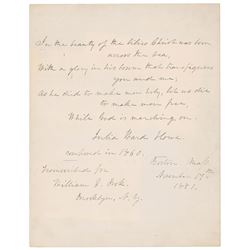 In the beauty of the lilies Christ was born
across the sea,
With a glory in his bosom that transfigures
you and me;
As he died to make men holy, let us die
to make men free,
While God is marching on.
Julia Ward Howe.
composed in 1860.
Boston Mass.
1881.
Transcribed for
William J.
Brooklyn, N. Y.